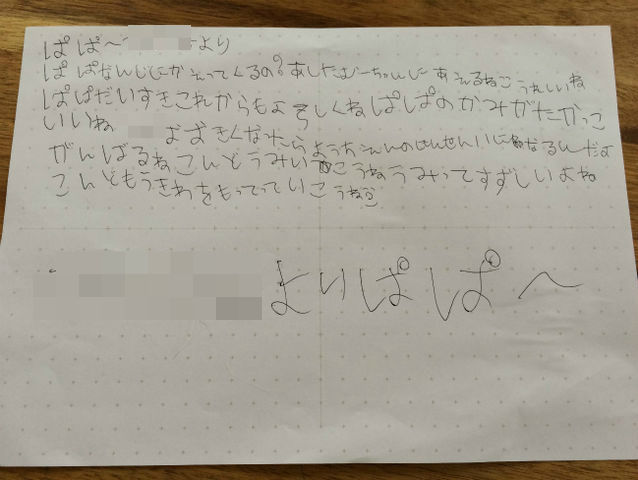 ぱぱ〜 より
ぱぱなんじにかえってくるの？あしたばーちゃんにあえるねこうれしいね
ぱぱだいすきこれからもよろしくねぱぱのかみがたかっこ
いいね おおきくなったらようちえんのせんせいになるんだよ
がんばるねこんどうみいこうねうみってすずしいよね
こんどもうきわをもってっていこうね
よりぱぱ〜